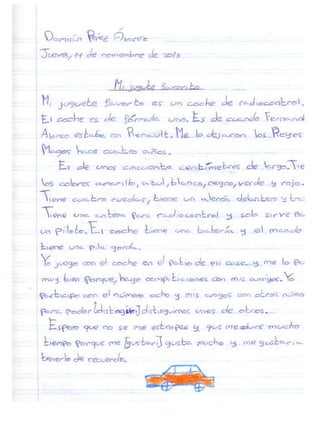 Damián Pérez Álvarez
Jueves, 14 de noviembre de 2013
Mi juguete favorito
Mi juguete favorito es un coche de radiocontrol.
El coche es de fórmula uno. Es de cuando Fernand
Alonso estaba en Renault. Me lo dejaron los Reyes
Magos hace cuatro años.
Es de unos cincuenta centímetros de largo. Tie
los colores amarillo, azul, blanco, negro, verde y rojo.
Tiene cuatro ruedas, tiene un alerón delantero y tra
Tiene una antena para radiocontrol y solo sirve pa
un piloto. El coche tiene una batería y el mando
tiene una pila gorda.
Yo juego con el coche en el patio de mi casa y me lo pa
muy bien porque, hago competiciones con mis amigos. Yo
participo con el número ocho y mis amigos con otros núme
para poder [distingin] distinguirnos unos de otros.
Espero que no se me estropee y que me dure mucho
tiempo porque me [gustari] gusta mucho y me gustaría
tenerlo de recuerdo.